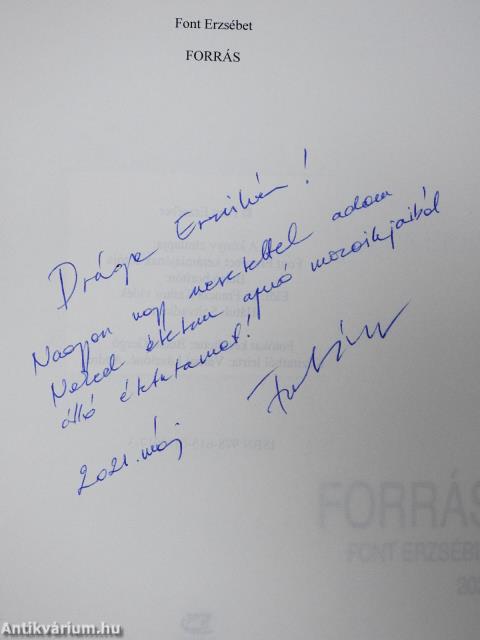 Font Erzsébet
FORRÁS
Drága Erzsikém!
Nagyon nagy szeretettel adom
Neked életem apró mozaikjaiból
álló életutamat!
2021. máj
FORRÁS
FONT ERZSÉB
Antikvárium.hu